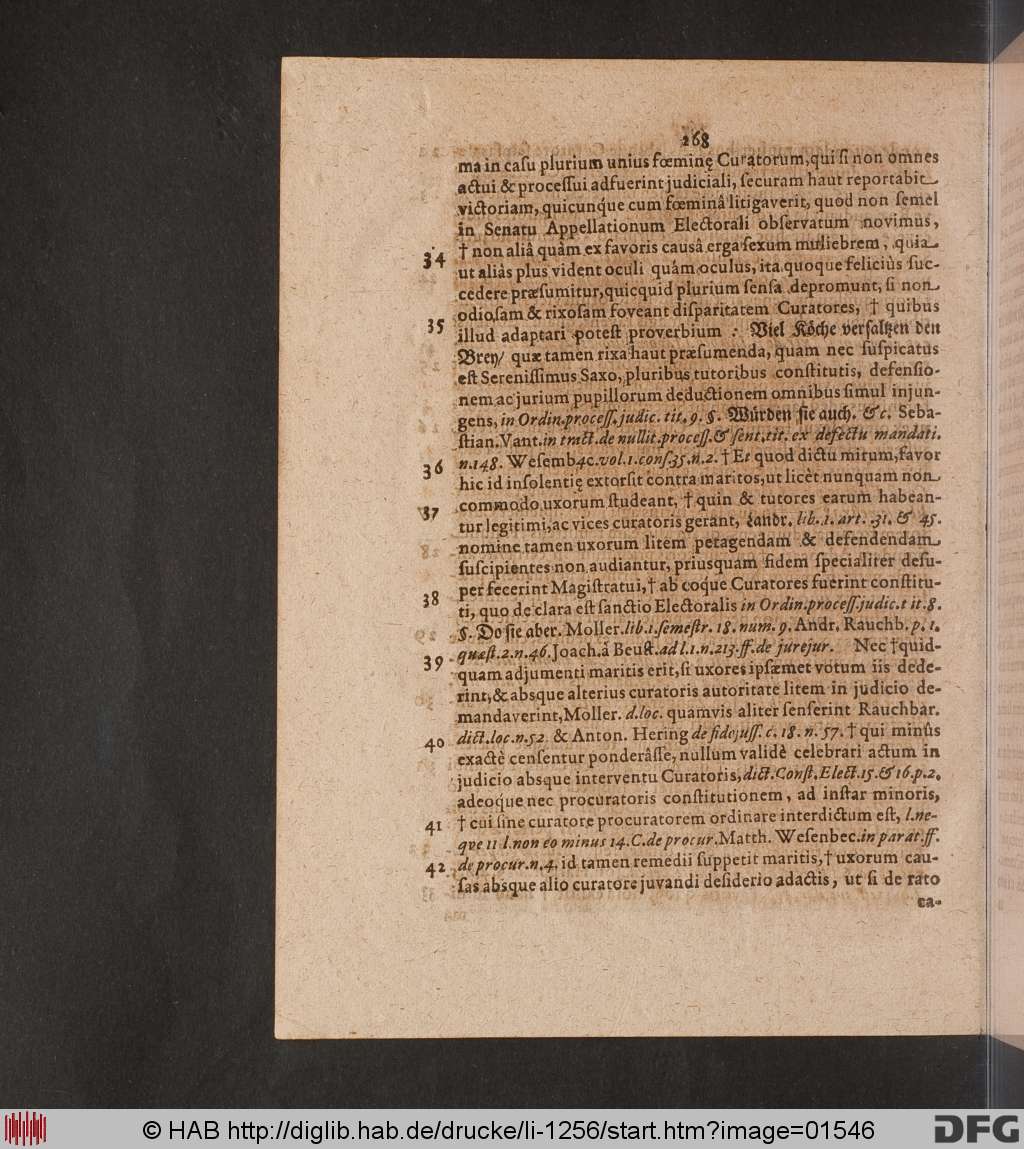 268
ma in caſu plurium unius fœminę Curatorum, qui ſi non omnes
actui & proceſſui adfuerint judiciali, ſecuram haut reportabit
victoriam, quicunq́ue cum fœminâ litigaverit, quod non ſemel
in Senatu Appellationum Electorali obſervatum novimus,
34 † non aliâ quàm ex favoris causâ erga ſexum muliebrem, quia
ut aliàs plus vident oculi quàm oculus, ita quoque feliciùs ſuc-
cedere præſumitur, quicquid plurium ſenſa depromunt, ſi non
odioſam & rixoſam foveant diſparitatem Curatores, † quibus
35 illud adaptari poteſt proverbium : Viel Köche verſaltzen den
Brey/ quæ tamen rixa haut præſumenda, quam nec ſuſpicatus
eſt Sereniſſimus Saxo, pluribus tutoribus conſtitutis, defenſio-
nem ac jurium pupillorum deductionem omnibus ſimul injun-
gens, in Ordin. proceſſ. judic. tit. 9. §. Würden ſie auch. &c. Seba-
ſtian. Vant. in tract. de nullit. proceſſ. & ſent. tit. ex defectu mandati.
36 n. 148. Weſemb4c. vol. 1. conſ. 35. n. 2. † Et quod dictu mirum, favor
hic id inſolentię extorſit contra maritos, ut licèt nunquam non
commodo uxorum ſtudeant, † quin & tutores earum habean-
37 tur legitimi, ac vices curatoris gerant, Landr. lib. 1. art. 31. & 45.
nomine tamen uxorum litem peragendam & defendendam
ſuſcipientes non audiantur, priusquam fidem ſpecialiter deſu-
per fecerint Magiſtratui, † ab eoq́ue Curatores fuerint conſtitu-
38 ti, quo de clara eſt ſanctio Electoralis in Ordin. proceſſ. judic. t it. 8.
§. Do ſie aber. Moller. lib. 1. ſemeſtr. 18. num. 9. Andr. Rauchb. p. 1.
quæſt. 2. n. 46. Joach. à Beuſt. ad l. 1. n. 213. ff. de jurejur. Nec † quid-
39 quam adjumenti maritis erit, ſi uxores ipſæmet votum iis dede-
rint, & absque alterius curatoris autoritate litem in judicio de-
mandaverint, Moller. d. loc. quamvis aliter ſenſerint Rauchbar.
dict. loc. n. 52. & Anton. Hering de fidejuſſ. c. 18. n. 57. † qui minûs
40 exactè cenſentur ponderâſſe, nullum validè celebrari actum in
judicio absque interventu Curatoris, dict. Conſt. Elect. 15. & 16. p. 2.
adeoque nec procuratoris conſtitutionem, ad inſtar minoris,
41 † cui ſine curatore procuratorem ordinare interdictum eſt, l. ne-
que 11 l. non eo minus 14. C. de procur. Matth. Weſenbec. in parat. ff.
42 de procur. n. 4. id tamen remedii ſuppetit maritis, † uxorum cau-
ſas absque alio curatore juvandi deſiderio adactis, ut ſi de rato
ca-
© HAB http://diglib.hab.de/drucke/li-1256/start.htm?image=01546
DFG